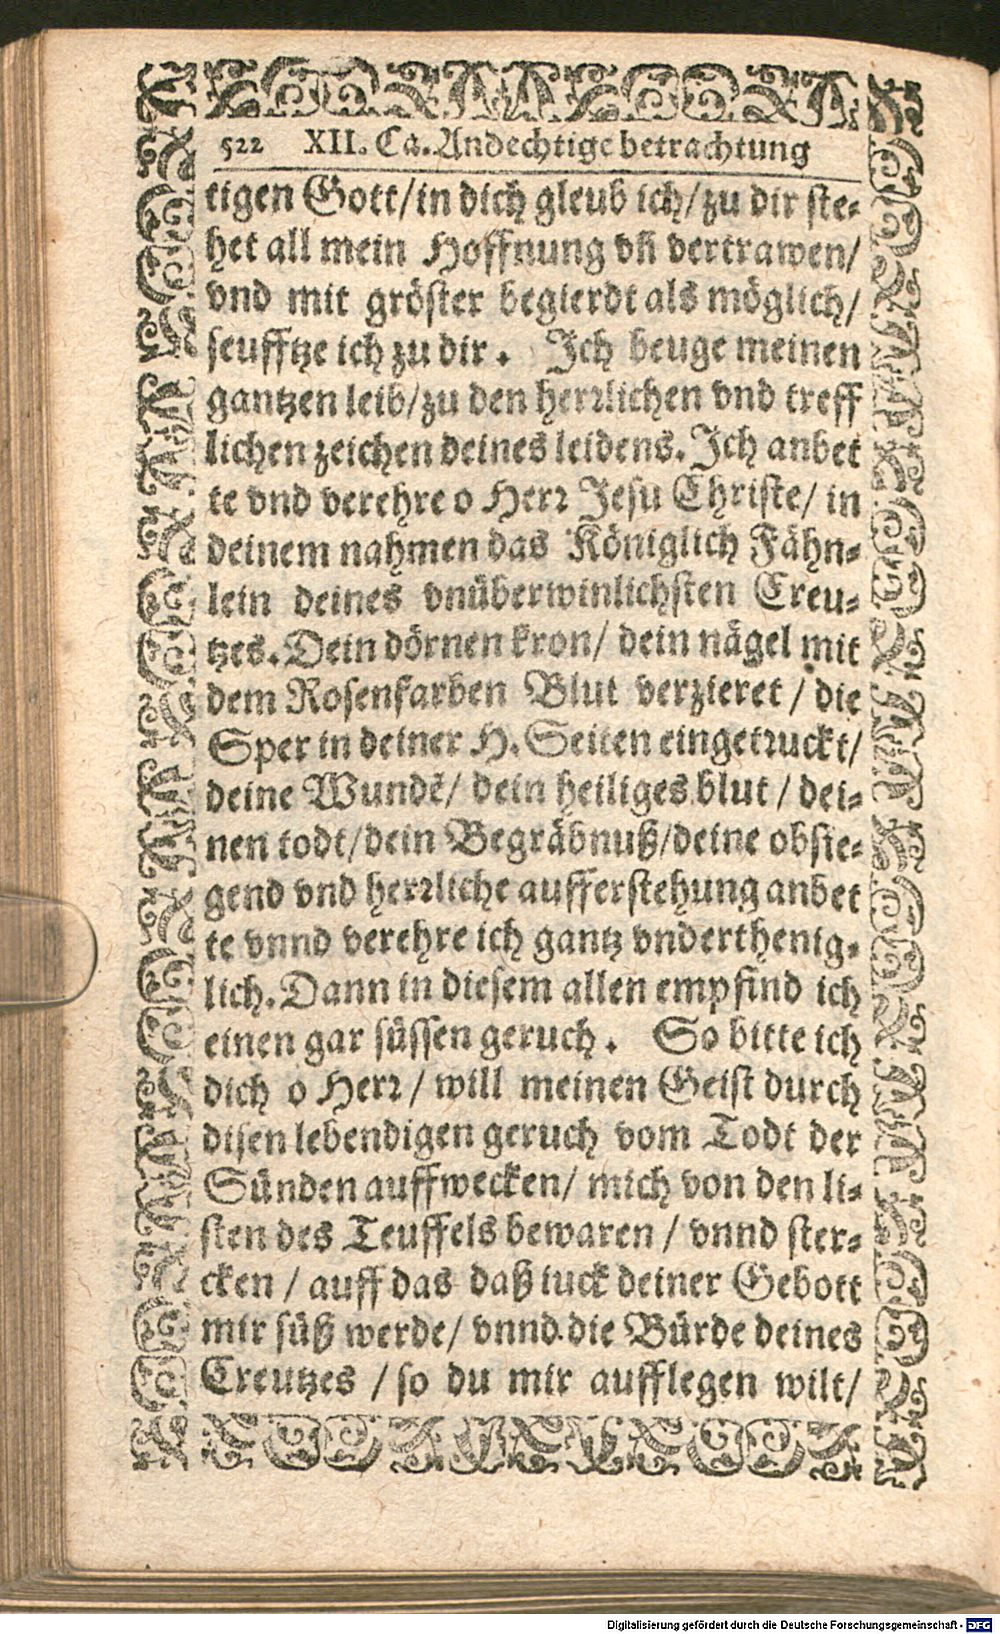 522 XII. Ca. Andechtige betrachtung
tigen Gott/in dich gleub ich/zu dir ste⸗
het all mein Hoffnung vñ vertrawen/
vnd mit gröster begierdt als möglich/
seufftze ich zu dir. Ich beuge meinen
gantzen leib/zu den herꝛlichen vnd treff
lichen zeichen deines leidens. Ich anbet
te vnd verehre o Herꝛ Jesu Christe/ in
deinem nahmen das Königlich Fähn⸗
lein deines vnüberwinlichsten Creu⸗
tzes. Dein dörnen kron/ dein nägel mit
dem Rosenfarben Blut verzieret / die
Sper in deiner H. Seiten eingetꝛuckt/
deine Wundẽ/ dein heiliges blut / dei⸗
nen todt/dein Begräbnuß/deine obsie⸗
gend vnd herꝛliche aufferstehung anbet
te vnnd verehre ich gantz vnderthenig⸗
lich. Dann in diesem allen empfind ich
einen gar süssen geruch. So bitte ich
dich o Herꝛ / will meinen Geist durch
disen lebendigen geruch vom Todt der
Sünden auffwecken/ mich von den li⸗
sten des Teuffels bewaren / vnnd ster⸗
cken / auff das daß iuck deiner Gebott
mir süß werde/ vnnd die Bürde deines
Creutzes / so du mir aufflegen wilt/
Digitalisierung gefördert durch die Deutsche Forschungsgemeinschaft - DFG